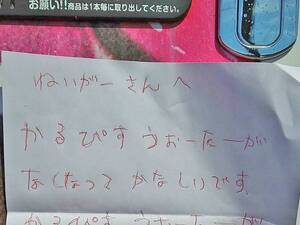 お願い!!商品は1本毎に取り出してください。
ねいがーさんへ
かるぴすうぉーたーが
なくなってかなしいです
かるぴすうぉーたーが